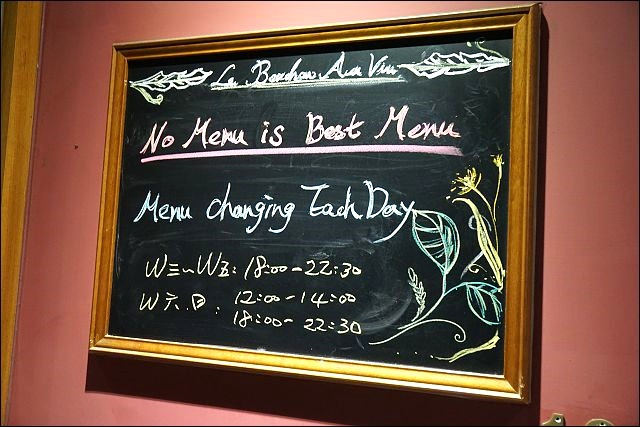 La Bouchon Aux Vin
No Menu is Best Menu
Menu changing Each Day
W三~W五: 18:00-22:30
W六.日: 12:00-14:00
18:00-22:30